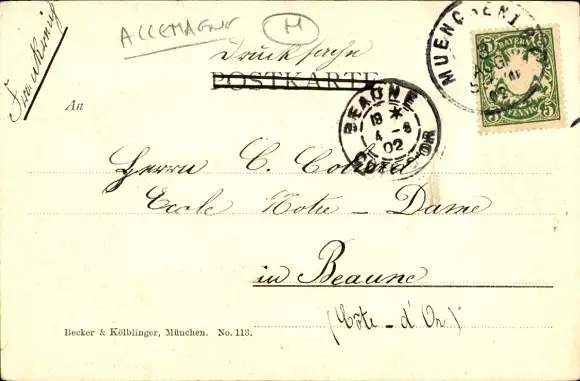 Frankreich
ALLEMAGNE
M
Drucksache
POSTKARTE
MUENCHEN 1
BAYERN
5 5
5 5
PFENNIG
An
BEAUNE
18 *
4 - 8
02
CÔTE-D'OR
Herrn C.
Ecole Notre - Dame
in Beaune
(Côte - d'Or.)
Becker & Kölblinger, München. No. 113.